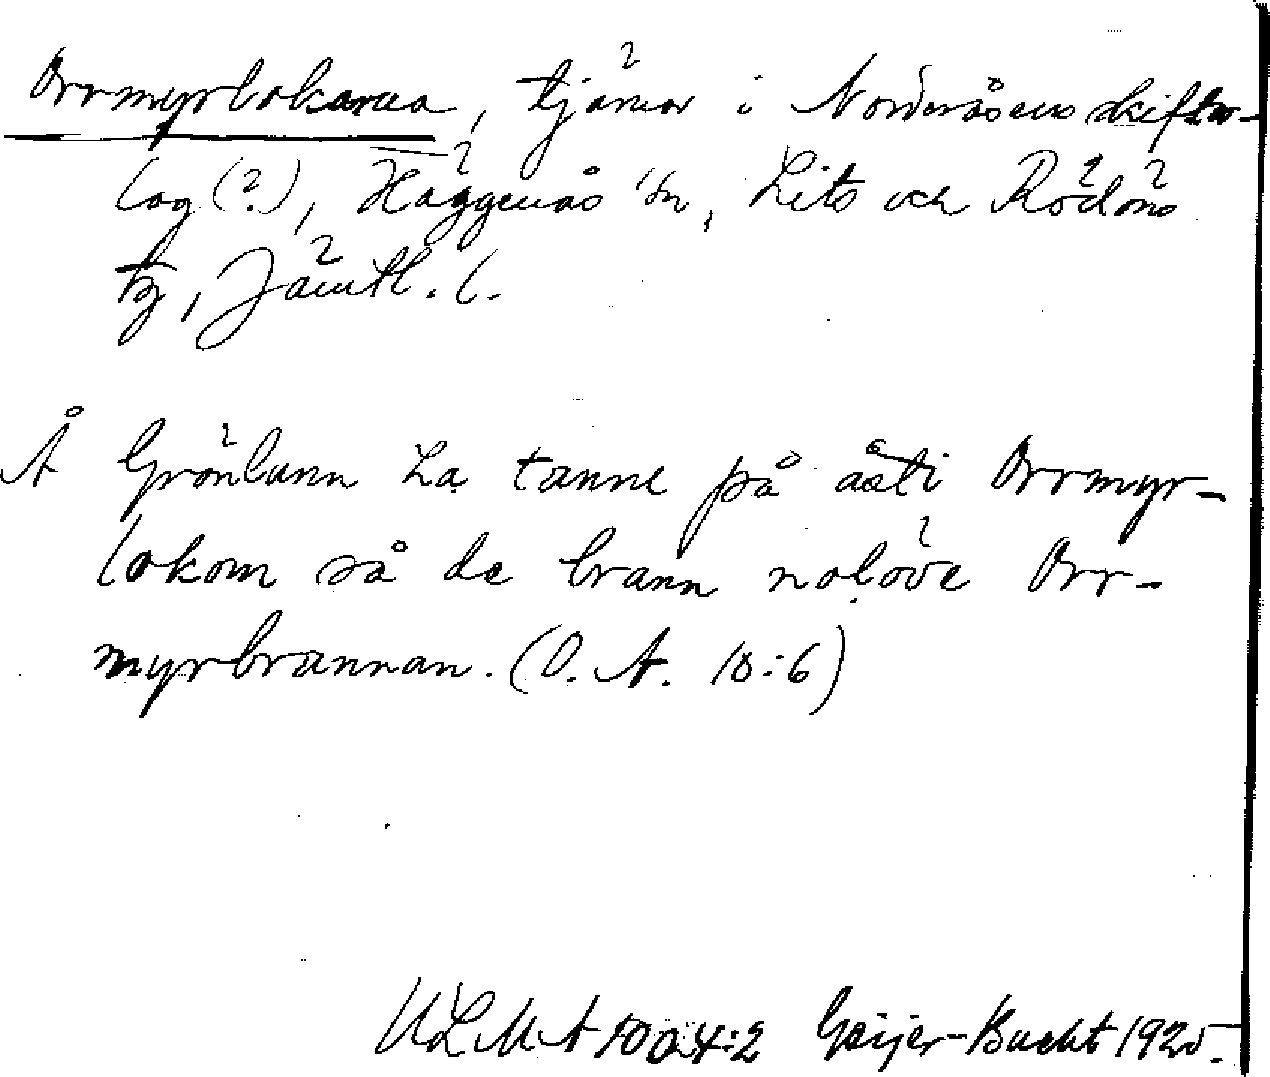 Orrmyrlokarna, tjärnar i Norderåsens skifts-
lag (?), Häggenås sn, Lits och Rödöns
tg, Jämtl. l.
Å Grönlann La tanne på åät i Orrmyr-
lokom så de brann nolöve Orr-
myrbrannan. (O. A. 10:6)
ULMA 1004:2 Geijer-Bucht 1925.